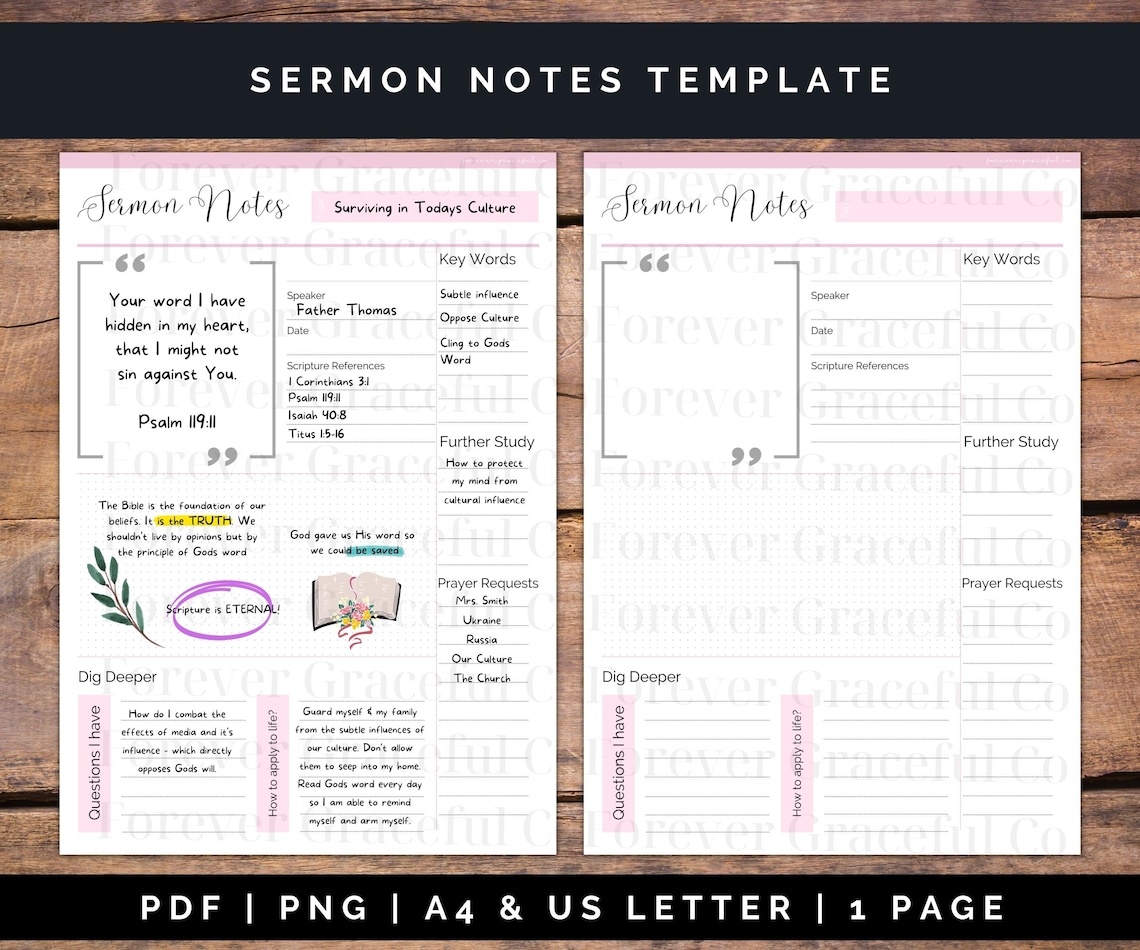 SERMON NOTES TEMPLATE
forever.graceful.co
Sermon Notes
Surviving in Todays Culture
“
Your word I have
hidden in my heart,
that I might not
sin against You.
Psalm 119:11
”
Speaker
Father Thomas
Date
Scripture References
1 Corinthians 3:1
Psalm 119:11
Isaiah 40:8
Titus 1:5-16
Key Words
Subtle influence
Oppose Culture
Cling to Gods
Word
Further Study
How to protect
my mind from
cultural influence
Prayer Requests
Mrs. Smith
Ukraine
Russia
Our Culture
The Church
The Bible is the foundation of our
beliefs. It is the TRUTH. We
shouldn't live by opinions but by
the principle of Gods word
God gave us His word so
we could be saved
Scripture is ETERNAL!
Dig Deeper
Questions I have
How do I combat the
effects of media and it's
influence - which directly
opposes Gods will.
How to apply to life?
Guard myself & my family
from the subtle influences of
our culture. Don't allow
them to seep into my home.
Read Gods word every day
so I am able to remind
myself and arm myself.
forever.graceful.co
Sermon Notes
“
”
Speaker
Date
Scripture References
Key Words
Further Study
Prayer Requests
Dig Deeper
Questions I have
How to apply to life?
Forever Graceful Co
Forever Graceful Co
Forever Graceful Co
Forever Graceful Co
Forever Graceful Co
Forever Graceful Co
Forever Graceful Co
PDF | PNG | A4 & US LETTER | 1 PAGE